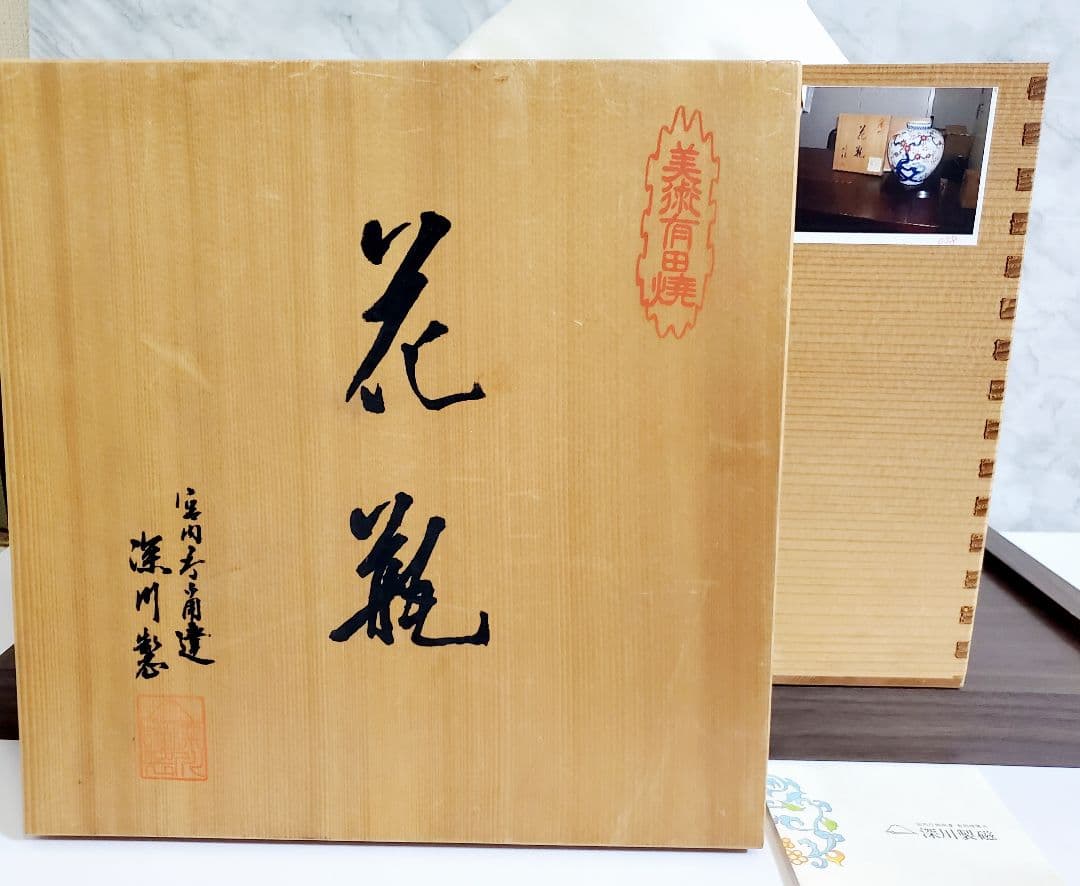 美術有田焼
花瓶
宮内庁御用達
深川製
花瓶
深川製磁